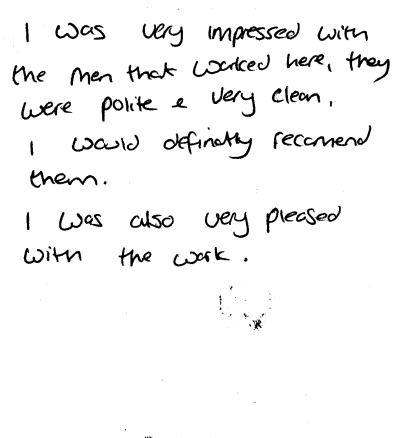 I was very impressed with
the men that worked here, they
were polite & very clean.
I would definatly recomend
them.
I was also very pleased
with the work.